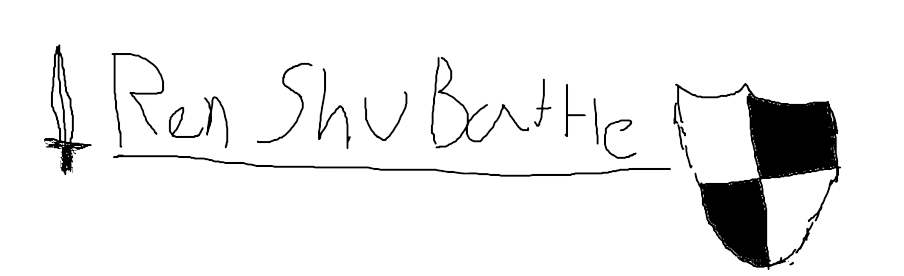 Ren Shu Battle